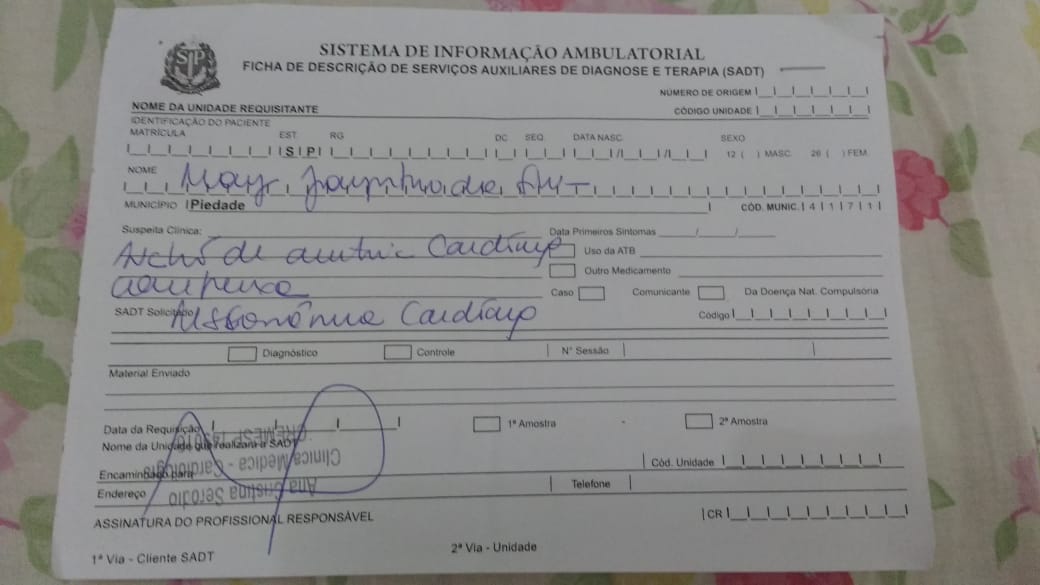 SISTEMA DE INFORMAÇÃO AMBULATORIAL
FICHA DE DESCRIÇÃO DE SERVIÇOS AUXILIARES DE DIAGNOSE E TERAPIA (SADT)
NÚMERO DE ORIGEM
NOME DA UNIDADE REQUISITANTE CÓDIGO UNIDADE
IDENTIFICAÇÃO DO PACIENTE
MATRÍCULA EST. RG DC SEQ. DATA NASC. SEXO
SP 12 ( ) MASC. 26 ( ) FEM.
NOME
MUNICÍPIO Piedade CÓD. MUNIC. 4171
Suspeita Clínica: Data Primeiros Sintomas
de Cardíaca Uso da ATB
Outro Medicamento
Caso Comunicante Da Doença Nat. Compulsória
SADT Solicitado Cardíaca Código
Diagnóstico Controle N° Sessão
Material Enviado
Data da Requisição 1ª Amostra 2ª Amostra
Nome da Unidade que realizará a SADT
Encaminhado para Cód. Unidade
Endereço Telefone
Ana Cristina Serodio
Clínica Médica - Cardiologia
CREMESP
ASSINATURA DO PROFISSIONAL RESPONSÁVEL CR
1ª Via - Cliente SADT 2ª Via - Unidade